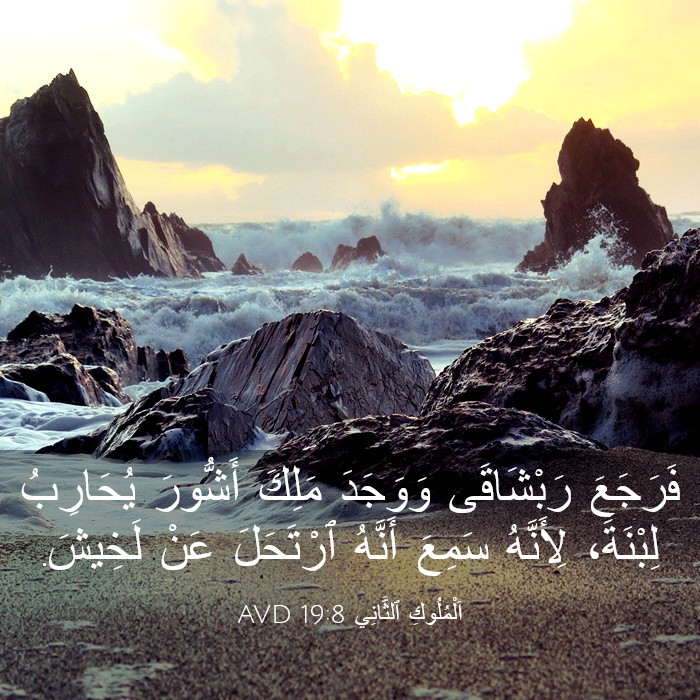 فَرَجَعَ رَبْشَاقَى وَوَجَدَ مَلِكَ أَشُّورَ يُحَارِبُ
لِبْنَةَ، لِأَنَّهُ سَمِعَ أَنَّهُ ٱرْتَحَلَ عَنْ لَخِيشَ.
اَلْمُلُوكِ ٱلثَّانِي 19:8 AVD